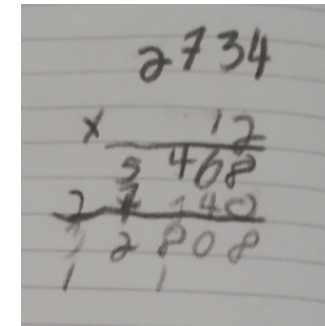 2734
x 12
5468
27340
32808
1 1